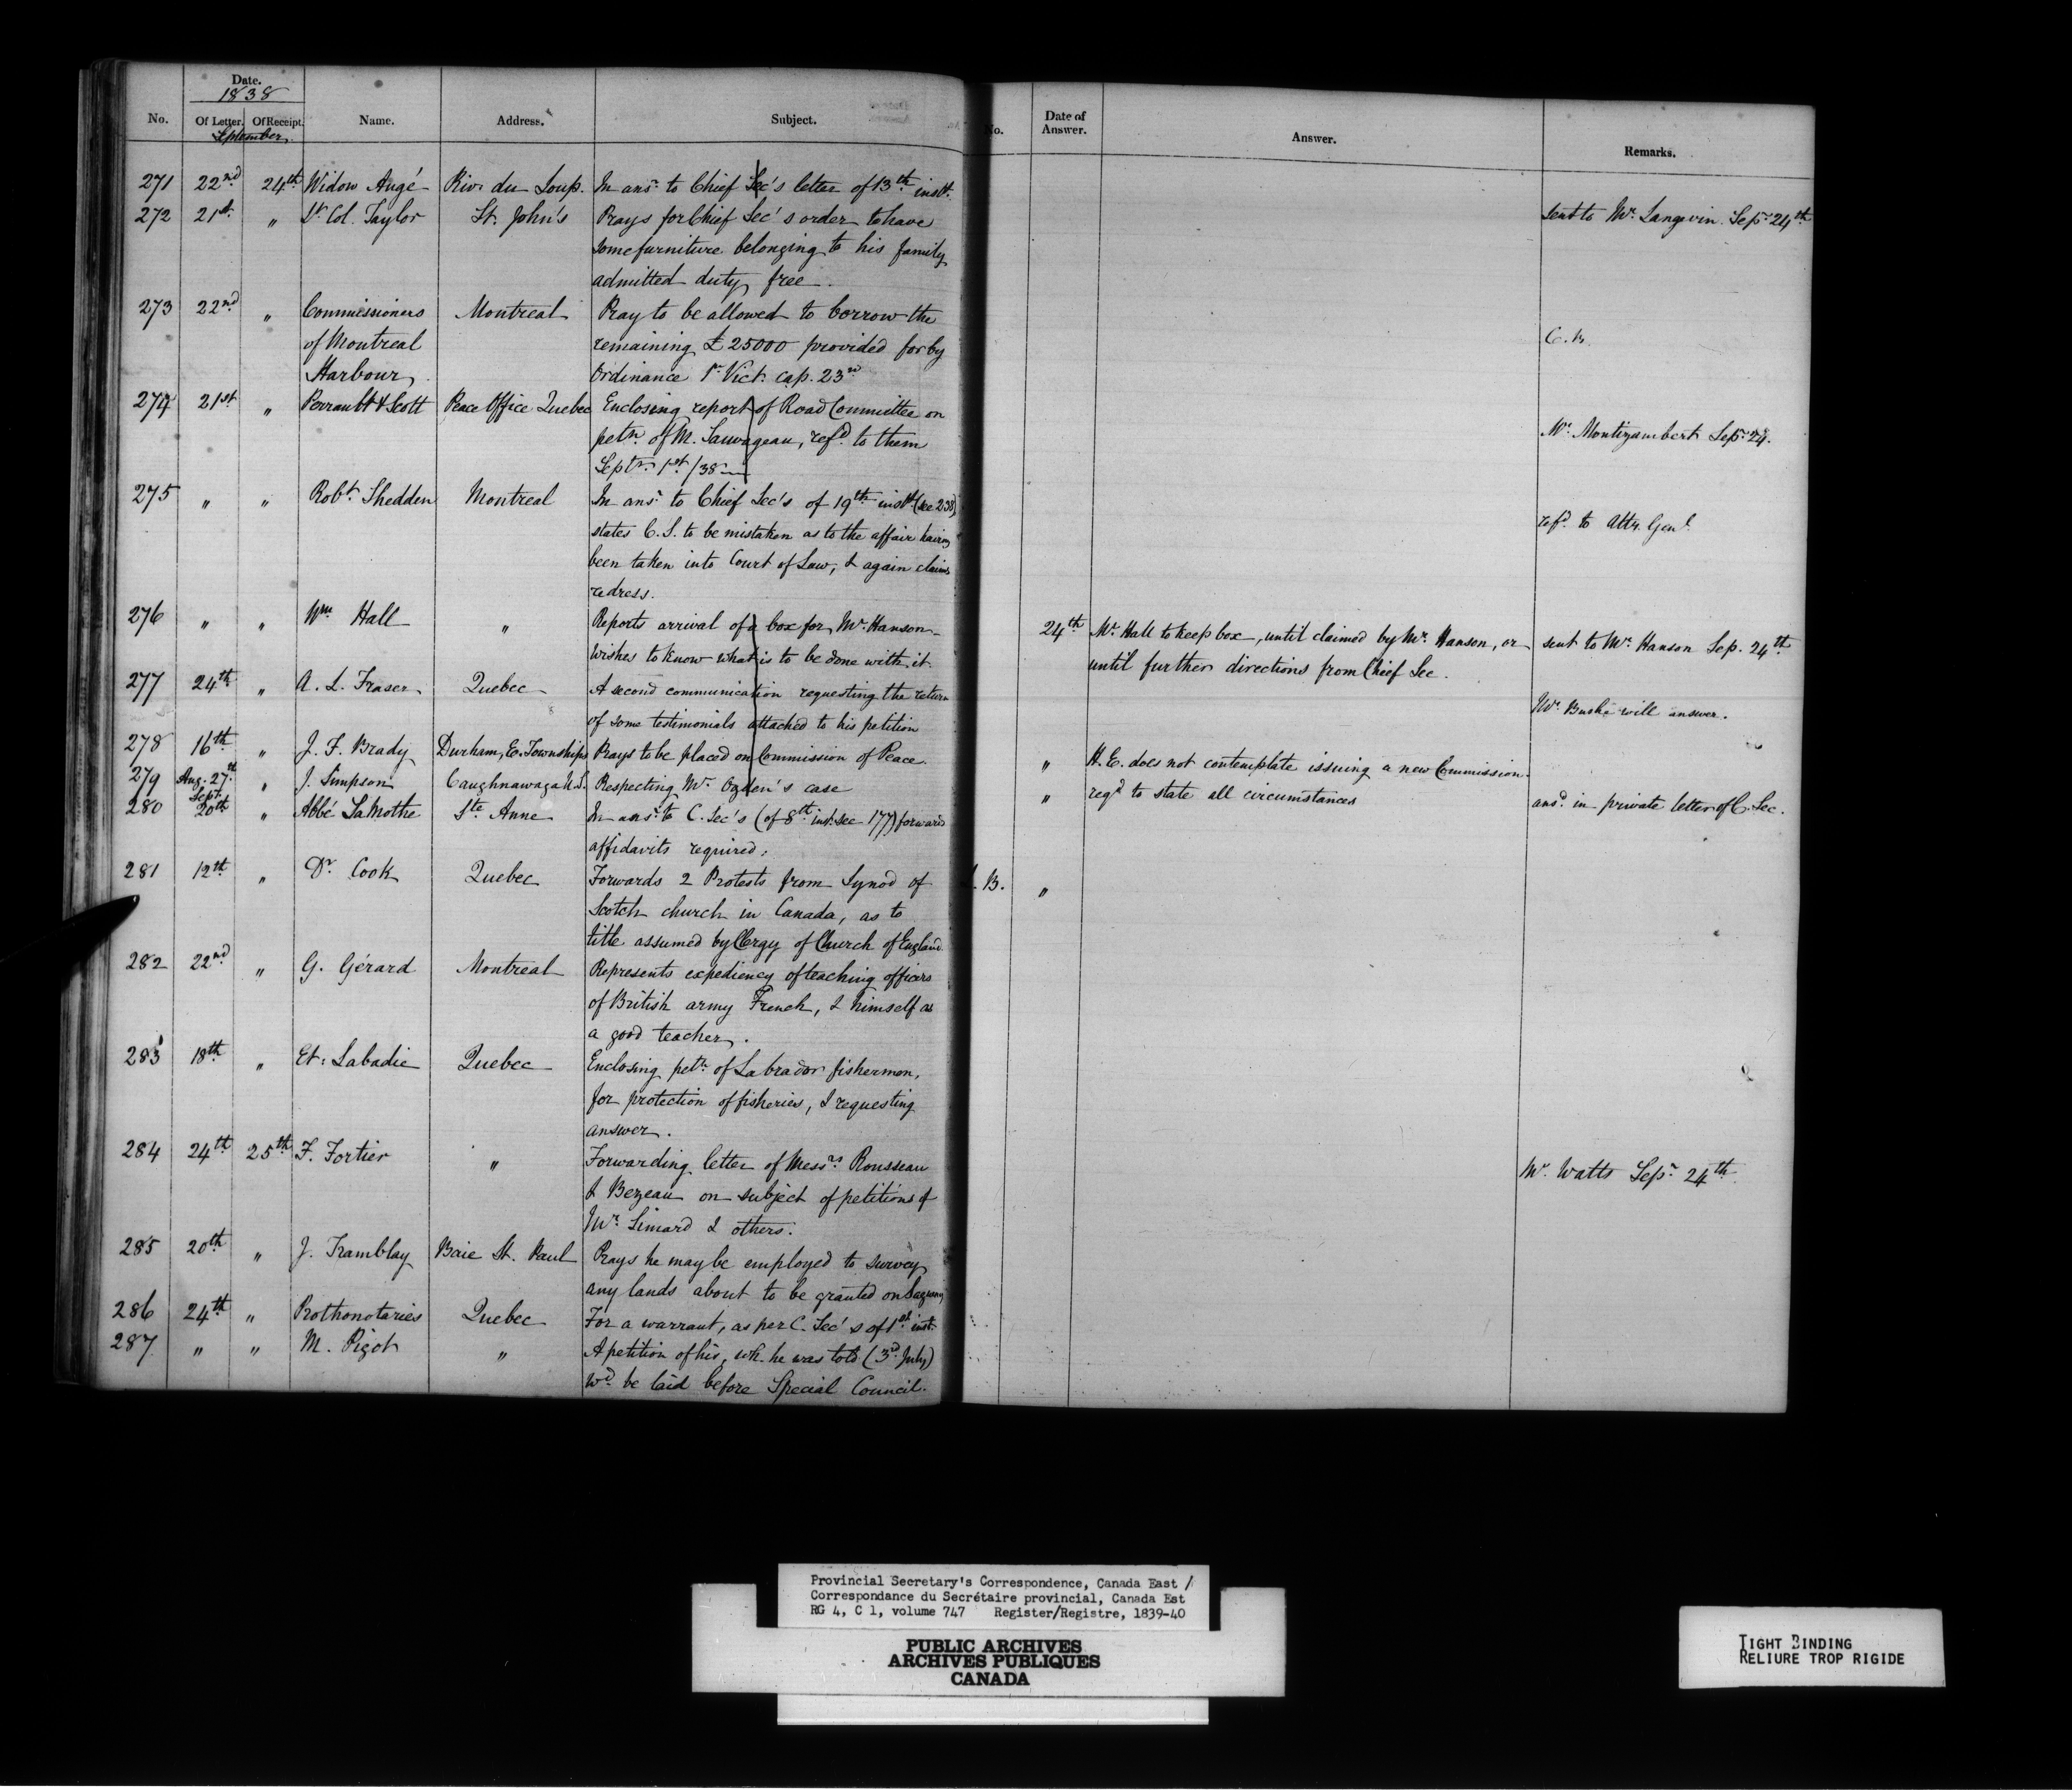 Date.
1838
No. Of Letter. Of Receipt. Name. Address. Subject.
September
No. Date of Answer. Answer. Remarks.
271 22nd 24th Widow Augé Riv. du Loup. In ansr. to Chief Sec's letter of 13th instt.
272 21st " Lt Col. Taylor St. John's Prays for Chief Sec's order to have
sent to Mr. Langevin. Sepr. 24th
some furniture belonging to his family
admitted duty free.
273 22nd " Commissioners Montreal Pray to be allowed to borrow the
of Montreal remaining £25000 provided for by
C. B.
Harbour Ordinance 1st Vict. cap. 23rd
274 21st " Perrault & Scott Peace Office Quebec Enclosing report of Road Committee on
petn. of M. Sauvageau, refd. to them
Mr. Montizambert Sepr. 24.
Septr. 1st/38
275 " " Robt. Shedden Montreal In ansr. to Chief Sec's of 19th instt. (see 238)
states C. S. to be mistaken as to the affair having
refd. to Atty. Genl.
been taken into Court of Law, & again claims
redress.
276 " " Wm Hall " Reports arrival of a box for Mr. Hanson
24th Mr. Hall to keep box, until claimed by Mr. Hanson, or sent to Mr. Hanson Sep. 24th
wishes to know what is to be done with it.
until further directions from Chief Sec.
277 24th " A. L. Fraser Quebec A second communication requesting the return
Mr. Buske will answer.
of some testimonials attached to his petition
278 16th " J. F. Brady Durham, E. Townships Prays to be placed on Commission of Peace.
" H. E. does not contemplate issuing a new Commission.
279 Aug. 27th " J. Simpson Caughnawaga Respecting Mr. Ogden's case
" reqd. to state all circumstances ansd. in private letter of C. Sec.
280 Sept. 20th " Abbé La Mothe Ste. Anne In ansr. to C. Sec's (of 8th inst. see 177) forwards
affidavits required.
281 12th " Dr. Cook Quebec Forwards 2 Protests from Synod of
L. B. "
Scotch church in Canada, as to
title assumed by Clergy of Church of England.
282 22nd " G. Gérard Montreal Represents expediency of teaching officers
of British army French, & himself as
a good teacher.
283 18th " Et. Labadie Quebec Enclosing petn. of Labrador fishermen,
for protection of fisheries, & requesting
answer.
284 24th 25th F. Fortier " Forwarding letter of Messrs. Rousseau
Mr. Watts Sepr. 24th
& Bezeau on subject of petitions of
Mr. Simard & others.
285 20th " J. Tramblay Baie St. Paul Prays he may be employed to survey
any lands about to be granted on Saguenay
286 24th " Prothonotaries Quebec For a warrant, as per C. Sec's of 1st inst.
287 " " M. Pigot " A petition of his, wh. he was told (3rd July)
wd. be laid before Special Council.
Provincial Secretary's Correspondence, Canada East /
Correspondance du Secrétaire provincial, Canada Est
RG 4, C 1, volume 747 Register/Registre, 1839-40
PUBLIC ARCHIVES
ARCHIVES PUBLIQUES
CANADA
TIGHT BINDING
RELIURE TROP RIGIDE